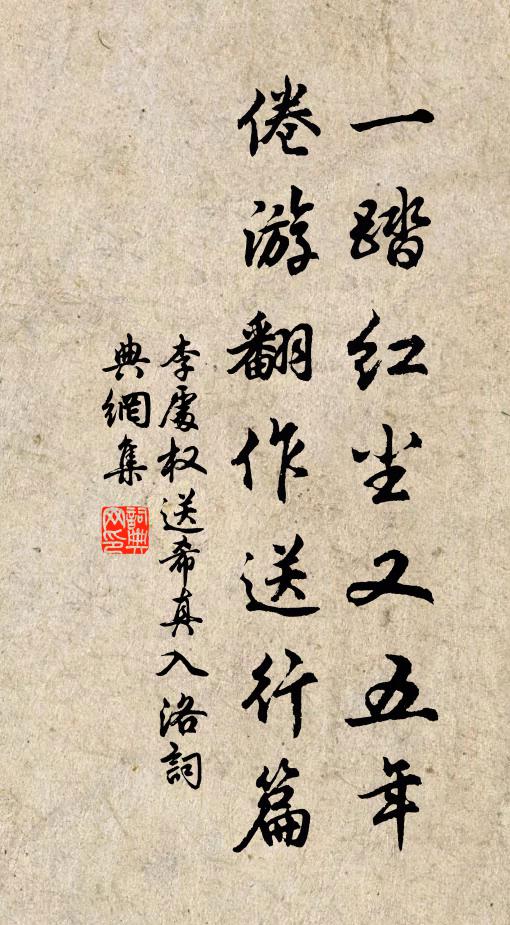 一踏红尘又五年
倦游翻作送行篇
李處权送希真入洛詞
典網集
詞典
网印